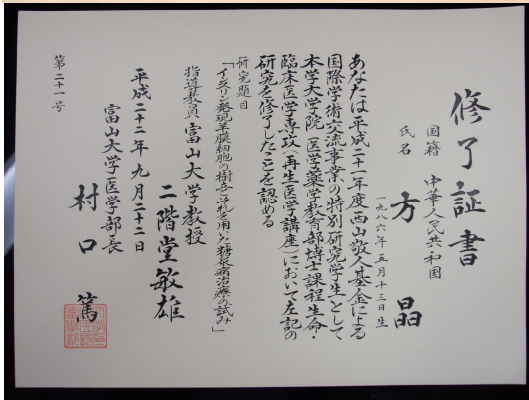 修了証書
国籍 中華人民共和国
氏名 方晶
一九八六年五月十三日生
あなたは平成二十一年度西山敬人基金による
国際学術交流事業の特別研究学生として
本学大学院医学薬学教育部博士課程生命・
臨床医学専攻(再生医学講座)において左記の
研究を修了したことを認める
研究題目
「インスリン発現羊膜細胞の樹立とそれを用いた糖尿病治療の試み」
指導教員 富山大学教授
二階堂敏雄
平成二十二年九月二十二日
富山大学医学部長
村口篤
第二十一号